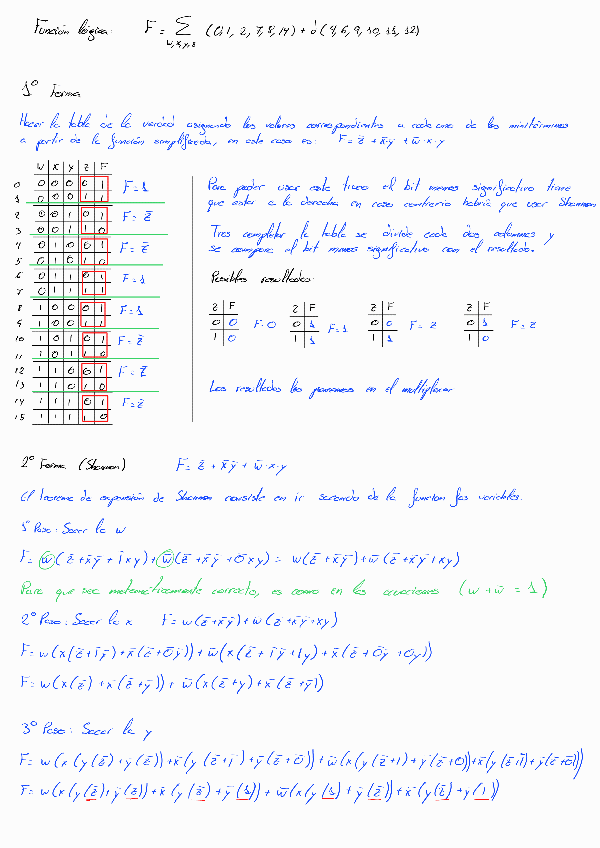 Función lógica: F = Σ w,x,y,z (0,1, 2, 7, 8, 14) + d (4, 6, 9, 10, 11, 12)
1º Forma
Hacer la tabla de la verdad asignando los valores correspondientes a cada uno de los minitérminos
a partir de la función simplificada, en este caso es: F = z̄ + x̄·ȳ + w̄·x·y
W X Y Z F
0 0 0 0 0 1 F=1
1 0 0 0 1 1
2 0 0 1 0 1 F = z̄
3 0 0 1 1 0
4 0 1 0 0 1 F = z̄
5 0 1 0 1 0
6 0 1 1 0 1 F = 1
7 0 1 1 1 1
8 1 0 0 0 1 F = 1
9 1 0 0 1 1
10 1 0 1 0 1 F = z̄
11 1 0 1 1 0
12 1 1 0 0 1 F = z̄
13 1 1 0 1 0
14 1 1 1 0 1 F = z̄
15 1 1 1 1 0
Para poder usar este truco el bit menos significativo tiene
que estar a la derecha en caso contrario habría que usar Shannon
Tras completar la tabla se divide cada dos columnas y
se compara el bit menos significativo con el resultado.
Posibles resultados:
Z F Z F Z F Z F
0 0 F=0 0 1 F=1 0 0 F = z 0 1 F = z̄
1 0 1 1 1 1 1 0
Los resultados los ponemos en el multiplexor
2º Forma (Shannon) F = z̄ + x̄ȳ + w̄·x·y
El teorema de expansión de Shannon consiste en ir sacando de la función las variables.
1º Paso: Sacar la w
F = w(z̄ + x̄ȳ + 1̄xy) + w̄(z̄ + x̄ȳ + 0̄xy) = w(z̄ + x̄ȳ) + w̄(z̄ + x̄ȳ + xy)
Para que sea matemáticamente correcto, es como en las ecuaciones (w + w̄ = 1)
2º Paso: Sacar la x F = w(z̄ + x̄ȳ) + w̄(z̄ + x̄ȳ + xy)
F = w(x(z̄ + 1̄ȳ) + x̄(z̄ + 0̄ȳ)) + w̄(x(z̄ + 1̄ȳ + 1y) + x̄(z̄ + 0̄ȳ + 0y))
F = w(x(z̄) + x̄(z̄ + ȳ)) + w̄(x(z̄ + y) + x̄(z̄ + ȳ))
3º Paso: Sacar la y
F = w(x(y(z̄) + ȳ(z̄)) + x̄(y(z̄ + 1̄) + ȳ(z̄ + 0̄))) + w̄(x(y(z̄ + 1) + ȳ(z̄ + 0)) + x̄(y(z̄ + 1̄) + ȳ(z̄ + 0̄)))
F = w(x(y(z̄) + ȳ(z̄)) + x̄(y(z̄) + ȳ(1))) + w̄(x(y(1) + ȳ(z̄)) + x̄(y(z̄) + ȳ(1)))